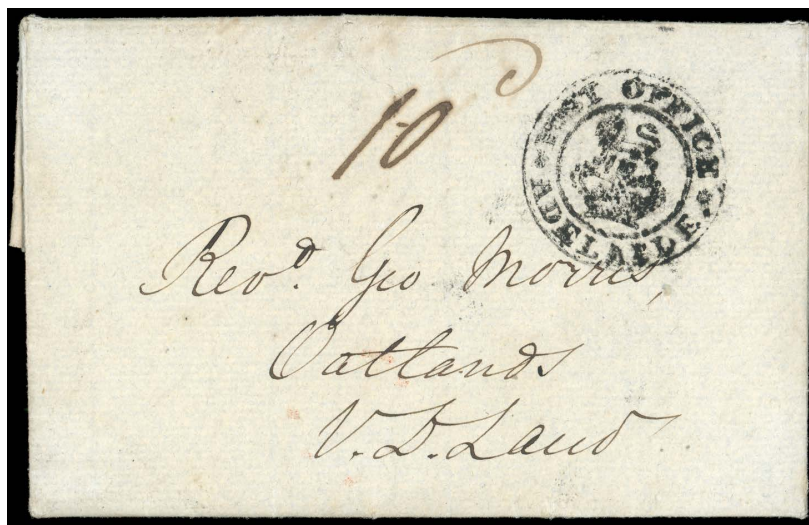 10
POST OFFICE ADELAIDE
Revd. Geo Morris,
Oatlands
V.D. Land.